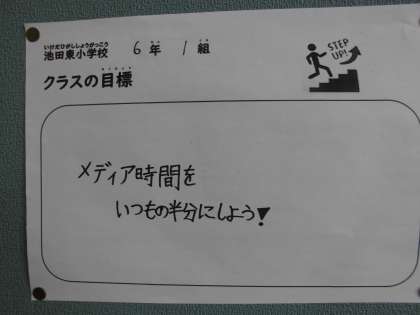 いけだひがししょうがっこう
池田東小学校 6年 1組
STEP UP!
クラスの目標
メディア時間を
いつもの半分にしよう!